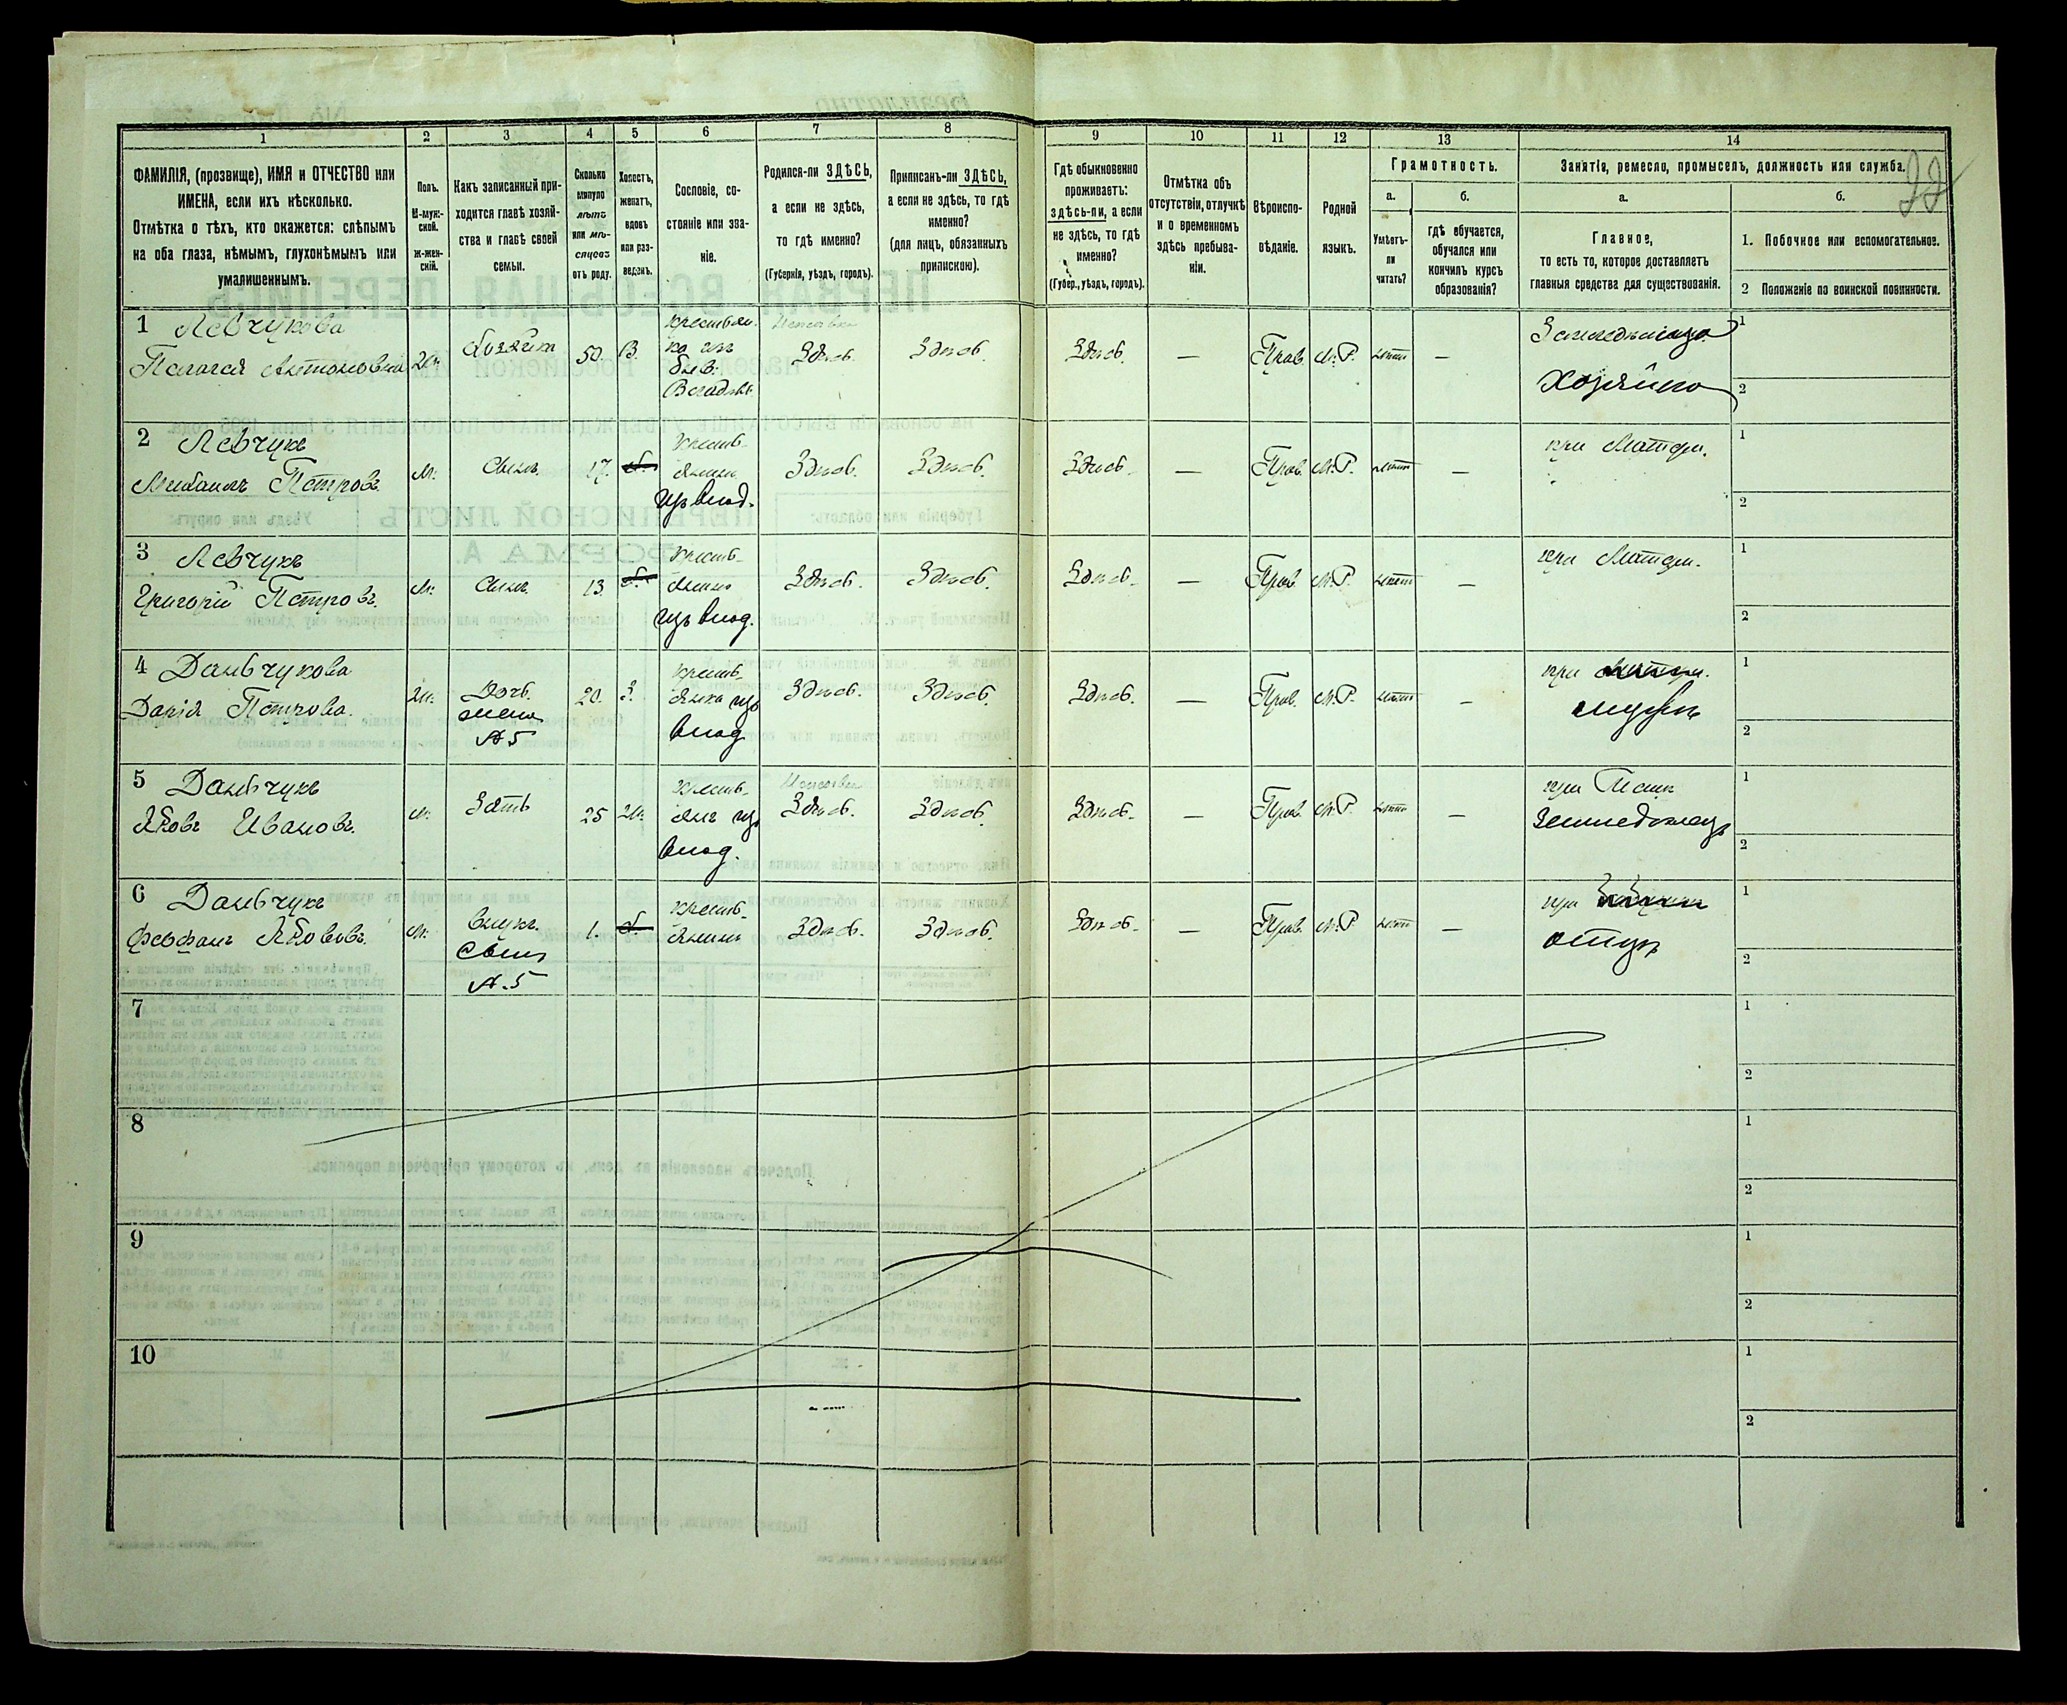 1
2
3
4
5
6
7
8
9
10
11
12
13
14
ФАМИЛІЯ, (прозвище), ИМЯ и ОТЧЕСТВО или
ИМЕНА, если ихъ нѣсколько.
Отмѣтка о тѣхъ, кто окажется: слѣпымъ
на оба глаза, нѣмымъ, глухонѣмымъ или
умалишеннымъ.
Полъ.
М-муж-
ской.
ж-жен-
скій.
Какъ записанный при-
ходится главѣ хозяй-
ства и главѣ своей
семьи.
Сколько
минуло
лѣтъ
или мѣ-
сяцевъ
отъ роду.
Холостъ,
женатъ,
вдовъ
или раз-
веденъ.
Сословіе, со-
стояніе или зва-
ніе.
Родился-ли ЗДѢСЬ,
а если не здѣсь,
то гдѣ именно?
(Губернія, уѣздъ, городъ).
Приписанъ-ли ЗДѢСЬ,
а если не здѣсь, то гдѣ
именно?
(для лицъ, обязанныхъ
припискою).
Гдѣ обыкновенно
проживаетъ:
здѣсь-ли, а если
не здѣсь, то гдѣ
именно?
(Губер., уѣздъ, городъ).
Отмѣтка объ
отсутствіи, отлучкѣ
и о временномъ
здѣсь пребыва-
ніи.
Вѣроиспо-
вѣданіе.
Родной
языкъ.
Грамотность.
а.
Умѣетъ-
ли
читать?
б.
гдѣ обучается,
обучался или
кончилъ курсъ
образованія?
Занятія, ремесло, промыселъ, должность или служба.
а.
Главное,
то есть то, которое доставляетъ
главныя средства для существованія.
б.
1. Побочное или вспомогательное.
2 Положеніе по воинской повинности.
22
1 Левчукова
Пелагея Антоновна
Ж.
Хозяйка
50.
В.
крестьян-
ка изъ
быв.
Владѣл.
Здѣсь.
Здѣсь.
Здѣсь.
—
Прав.
М.Р.
нѣтъ
—
Земледѣлица
хозяйка
1
2
2 Левчукъ
Михаилъ Петровъ.
М.
Сынъ.
17.
Х.
Крестья-
янинъ
изъ влад.
Здѣсь.
Здѣсь.
Здѣсь.
—
Прав.
М.Р.
нѣтъ
—
при Матери.
1
2
3 Левчукъ
Григорій Петровъ.
М.
Сынъ.
13.
Х.
Крестья-
янинъ
изъ влад.
Здѣсь.
Здѣсь.
Здѣсь.
—
Прав.
М.Р.
нѣтъ
—
при Матери.
1
2
4 Даньчукова
Дарія Петрова.
Ж.
Дочь.
жена
№ 5
20.
З.
Крестья-
янка изъ
влад
Здѣсь.
Здѣсь.
Здѣсь.
—
Прав.
М.Р.
нѣтъ
—
при Матери.
мужѣ
1
2
5 Даньчукъ
Яковъ Ивановъ.
М.
Зять
25
Ж.
Крестья-
янъ изъ
влад.
Здѣсь.
Здѣсь.
Здѣсь.
—
Прав.
М.Р.
нѣтъ
—
земледѣлецъ
1
2
6 Даньчукъ
Феофанъ Якововъ.
М.
внукъ.
сынъ
№.5
1.
Х.
Крестья-
янинъ
Здѣсь.
Здѣсь.
Здѣсь.
—
Прав.
М.Р.
нѣтъ
—
при
отцѣ
1
2
7
1
2
8
1
2
9
1
2
10
1
2